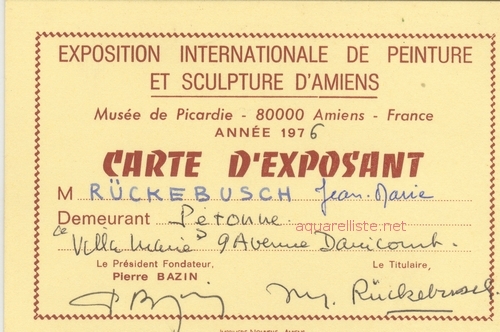 EXPOSITION INTERNATIONALE DE PEINTURE
ET SCULPTURE D'AMIENS
Musée de Picardie - 80000 Amiens - France
ANNÉE 1976
CARTE D'EXPOSANT
M RÜCKEBUSCH Jean-Marie
Demeurant Péronne
aquarelliste.net
"Villa Marie" 9 Avenue Danicourt.
Le Président Fondateur,
Le Titulaire,
Pierre BAZIN
Rückebusch